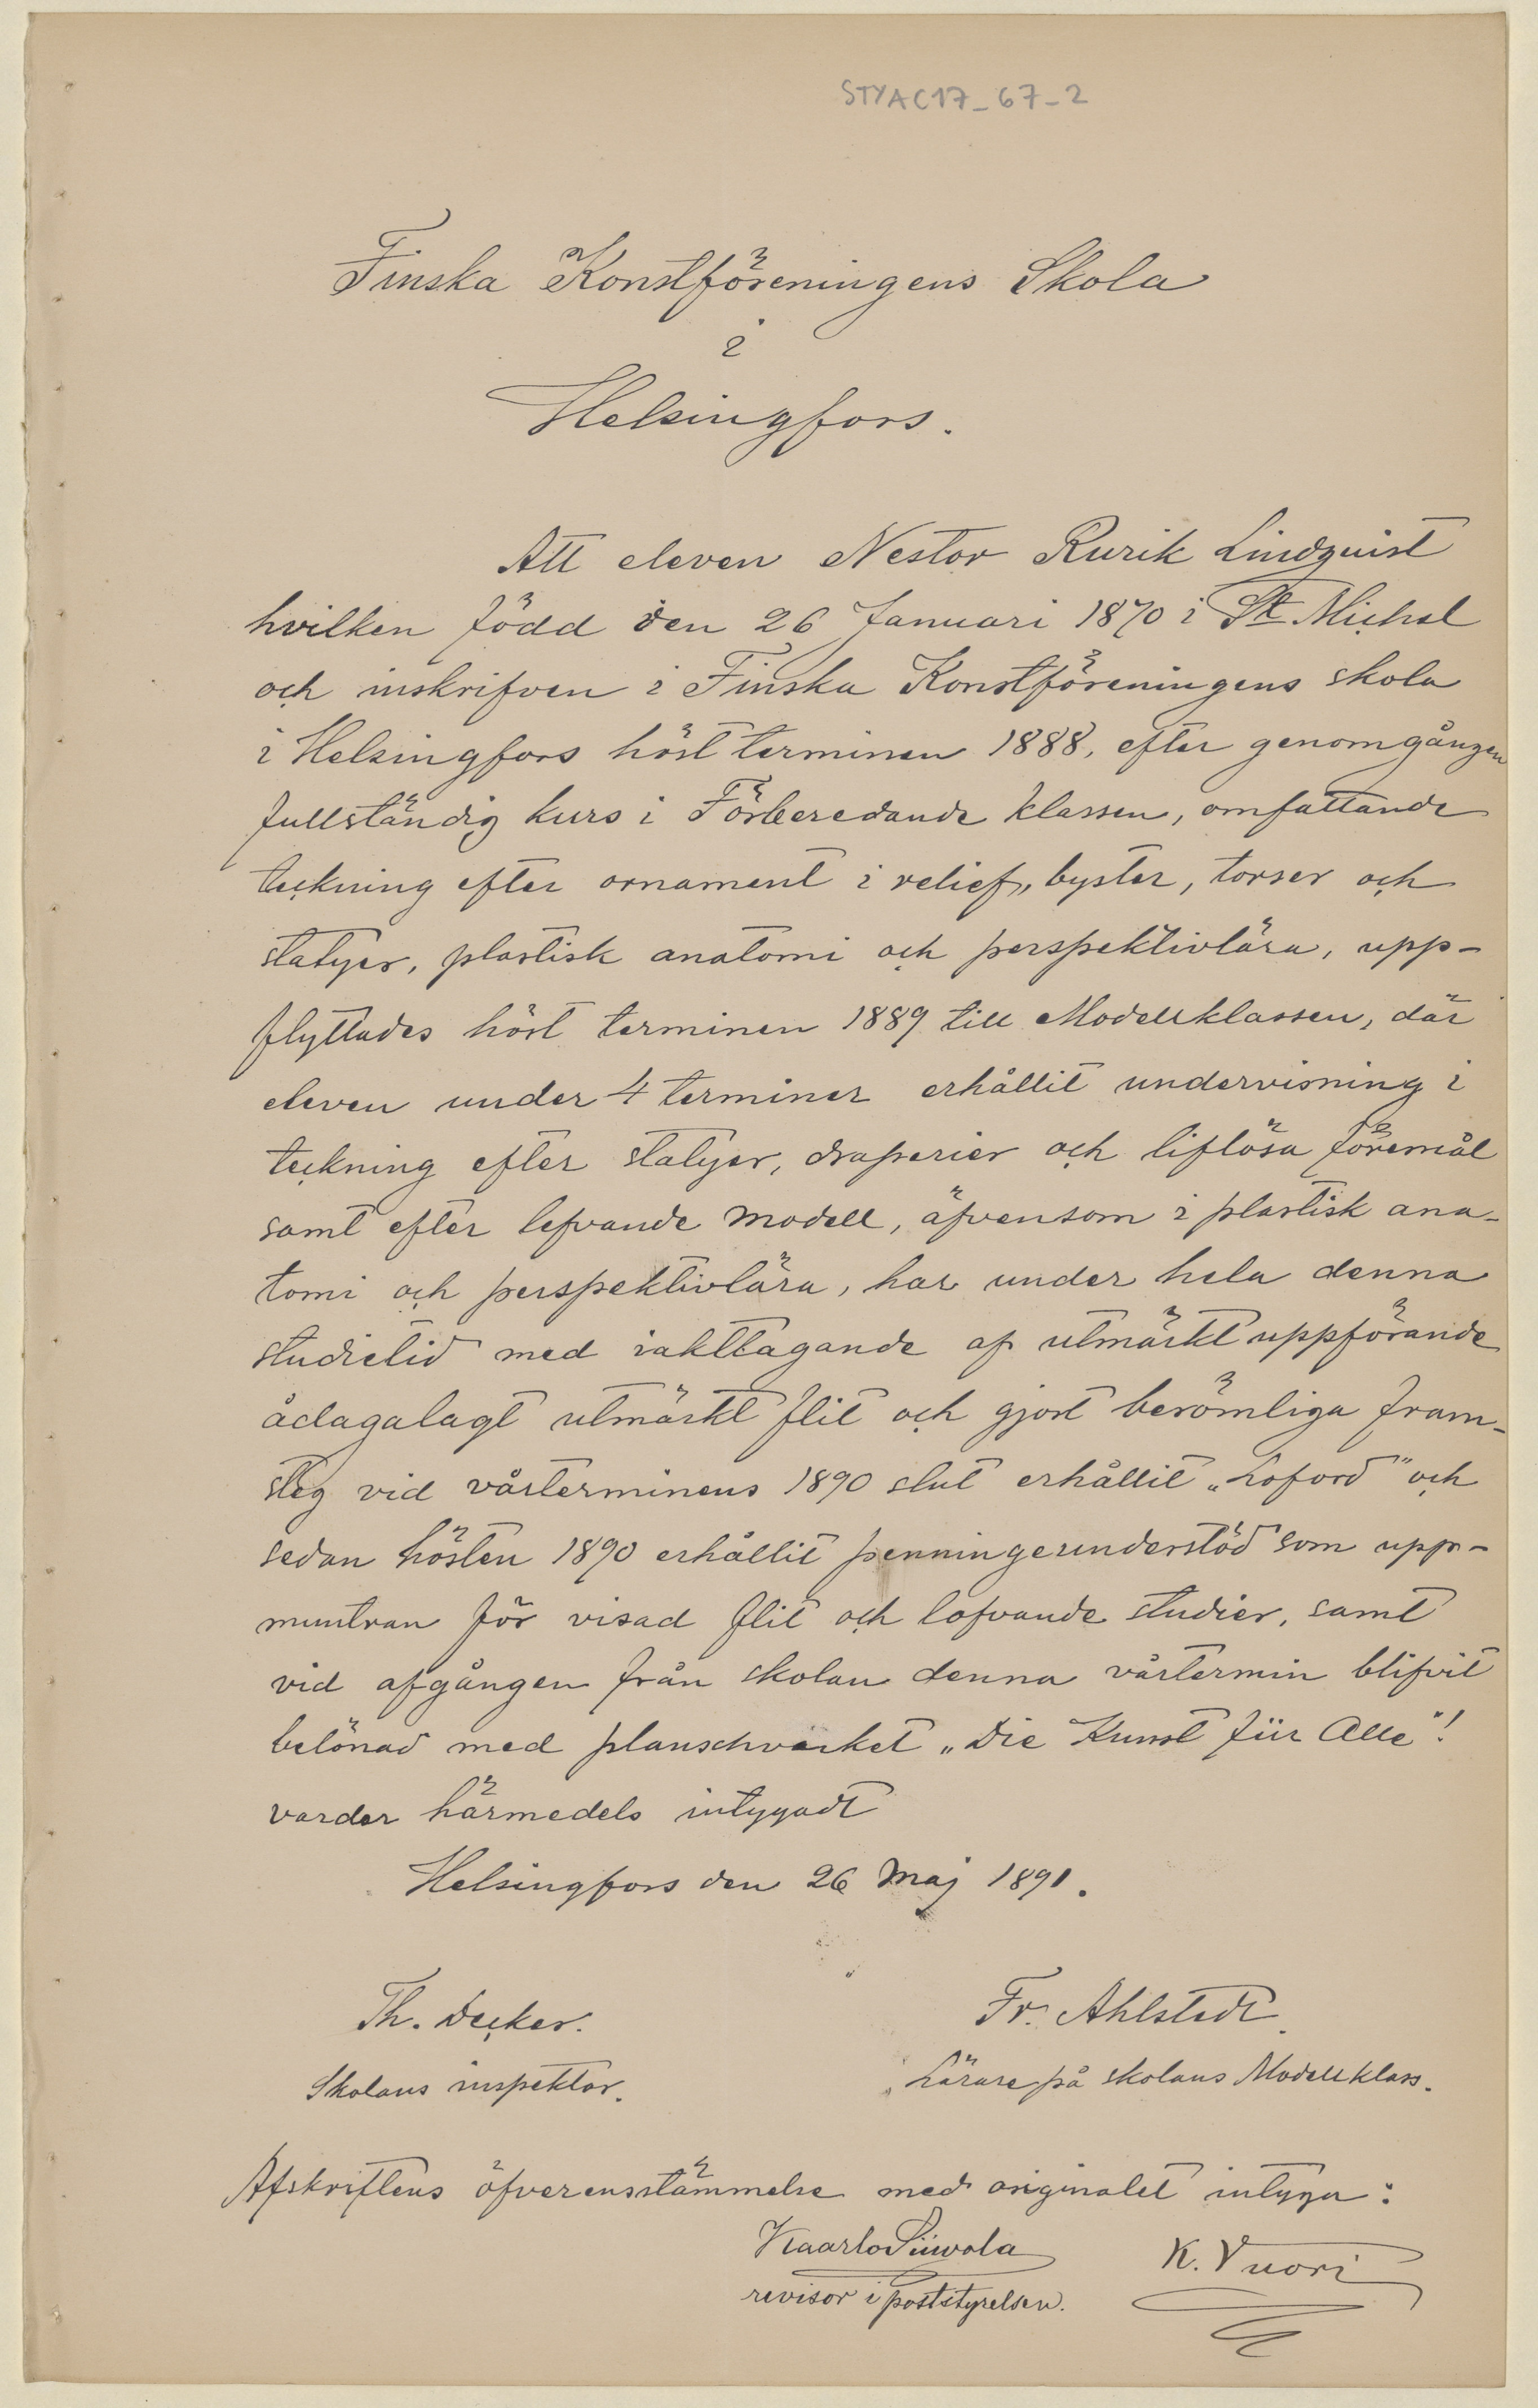 STYAC17_67_2
Finska Konstföreningens Skola
i
Helsingfors.
Att eleven Nestor Rurik Lindquist
hvilken född den 26 Januari 1870 i St. Michel
och inskrifven i Finska Konstföreningens skola
i Helsingfors höst terminen 1888, efter genomgången
fullständig kurs i Förberedande klassen, omfattande
teckning efter ornament i relief, byster, torser och
statyer, plastisk anatomi och perspektivlära, upp-
flyttades höst terminen 1889 till Modellklassen, där
eleven under 4 terminer erhållit undervisning i
teckning efter statyer, draperier och liflösa föremål
samt efter lefvande modell, äfvensom i plastisk ana-
tomi och perspektivlära, har under hela denna
studietid med iakttagande af utmärkt uppförande
ådagalagt utmärkt flit och gjort berömliga fram-
steg vid vårterminens 1890 slut erhållit „Loford" och
sedan hösten 1890 erhållit penningeunderstöd som upp-
muntran för visad flit och lofvande studier, samt
vid afgången från skolan denna vårtermin blifvit
belönad med planschvärket „Die Kunst für Alle"!
varder härmedels intygadt
Helsingfors den 26 Maj 1891.
Th. Decker.
Fr. Ahlstedt.
Skolans inspektor.
Lärare på skolans Modellklass.
Afskriftens öfverensstämmelse med originalet intyga:
Kaarlo Siiwola
K. Vuori
revisor i poststyrelsen.